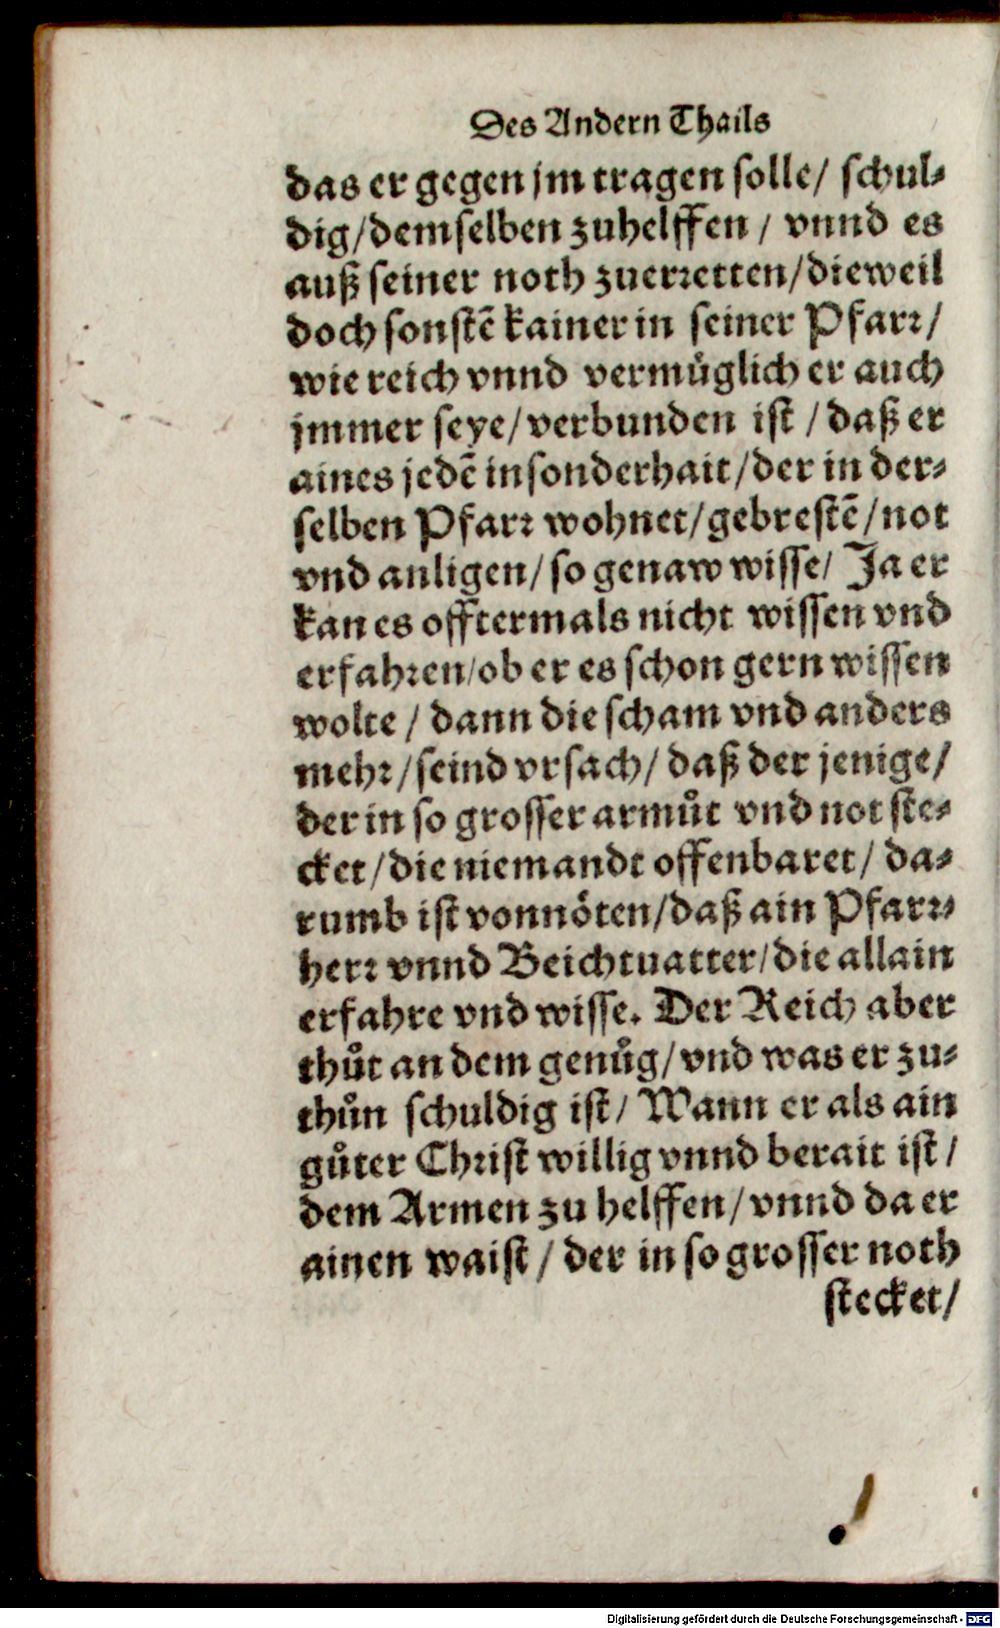 Des Andern Thails
das er gegen jm tragen solle/ schul⸗
dig/demselben zuhelffen / vnnd es
auß seiner noth zuerꝛetten/dieweil
doch sonstẽ kainer in seiner Pfarꝛ/
wie reich vnnd vermuͤglich er auch
jmmer seye/verbunden ist / daß er
aines jedẽ insonderhait/der in der⸗
selben Pfarꝛ wohnet/gebrestẽ/not
vnd anligen/so genaw wisse/ Ja er
kan es offtermals nicht wissen vnd
erfahꝛen/ob er es schon gern wissen
wolte / dann die scham vnd anders
mehꝛ/seind vrsach/ daß der jenige/
der in so grosser armůt vnd not ste⸗
cket/die niemandt offenbaret/ da⸗
rumb ist vonnoͤten/daß ain Pfarꝛ⸗
herꝛ vnnd Beichtuatter/die allain
erfahre vnd wisse. Der Reich aber
thůt an dem genůg/vnd was er zu⸗
thůn schuldig ist/ Wann er als ain
gůter Chꝛist willig vnnd berait ist/
dem Armen zu helffen/vnnd da er
ainen waist / der in so grosser noth
stecket/
Digitalisierung gefördert durch die Deutsche Forschungsgemeinschaft - DFG